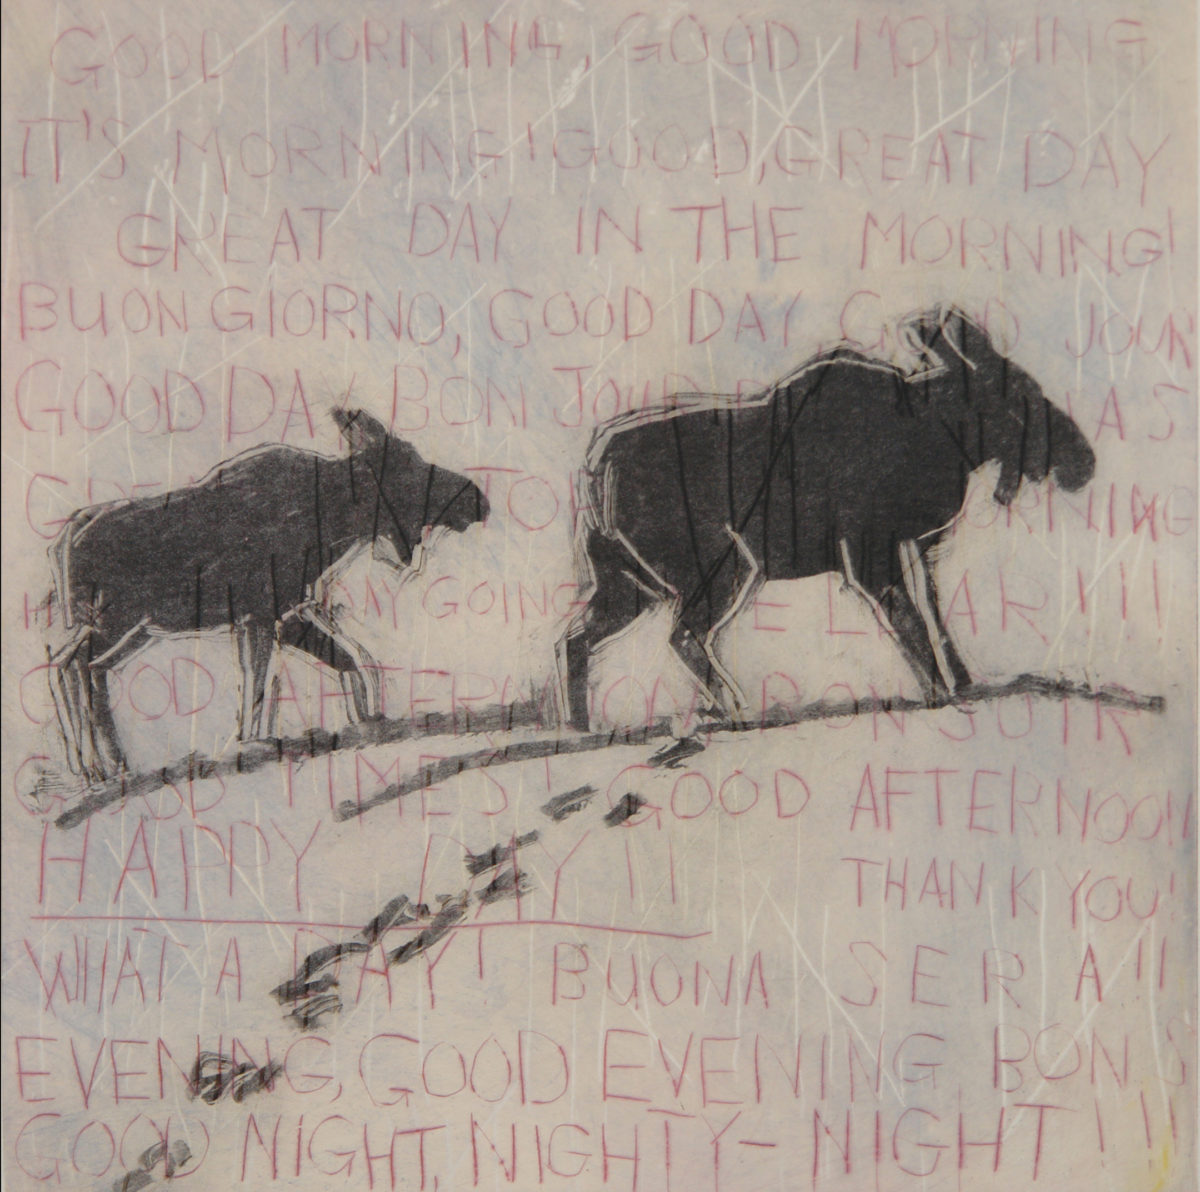 GOOD MORNING, GOOD MORNING
IT'S MORNING! GOOD, GREAT DAY
GREAT DAY IN THE MORNING!
BUON GIORNO, GOOD DAY GOOD JOUR
GOOD DAY BON JOUR
MORNING
DAY GOING
GOOD AFTERNOON BON SOIR
GOOD TIMES! GOOD AFTERNOON
HAPPY DAY!! THANK YOU!
WHAT A DAY! BUONA SERA!!
EVENING, GOOD EVENING BON S
GOOD NIGHT, NIGHTY-NIGHT!!!